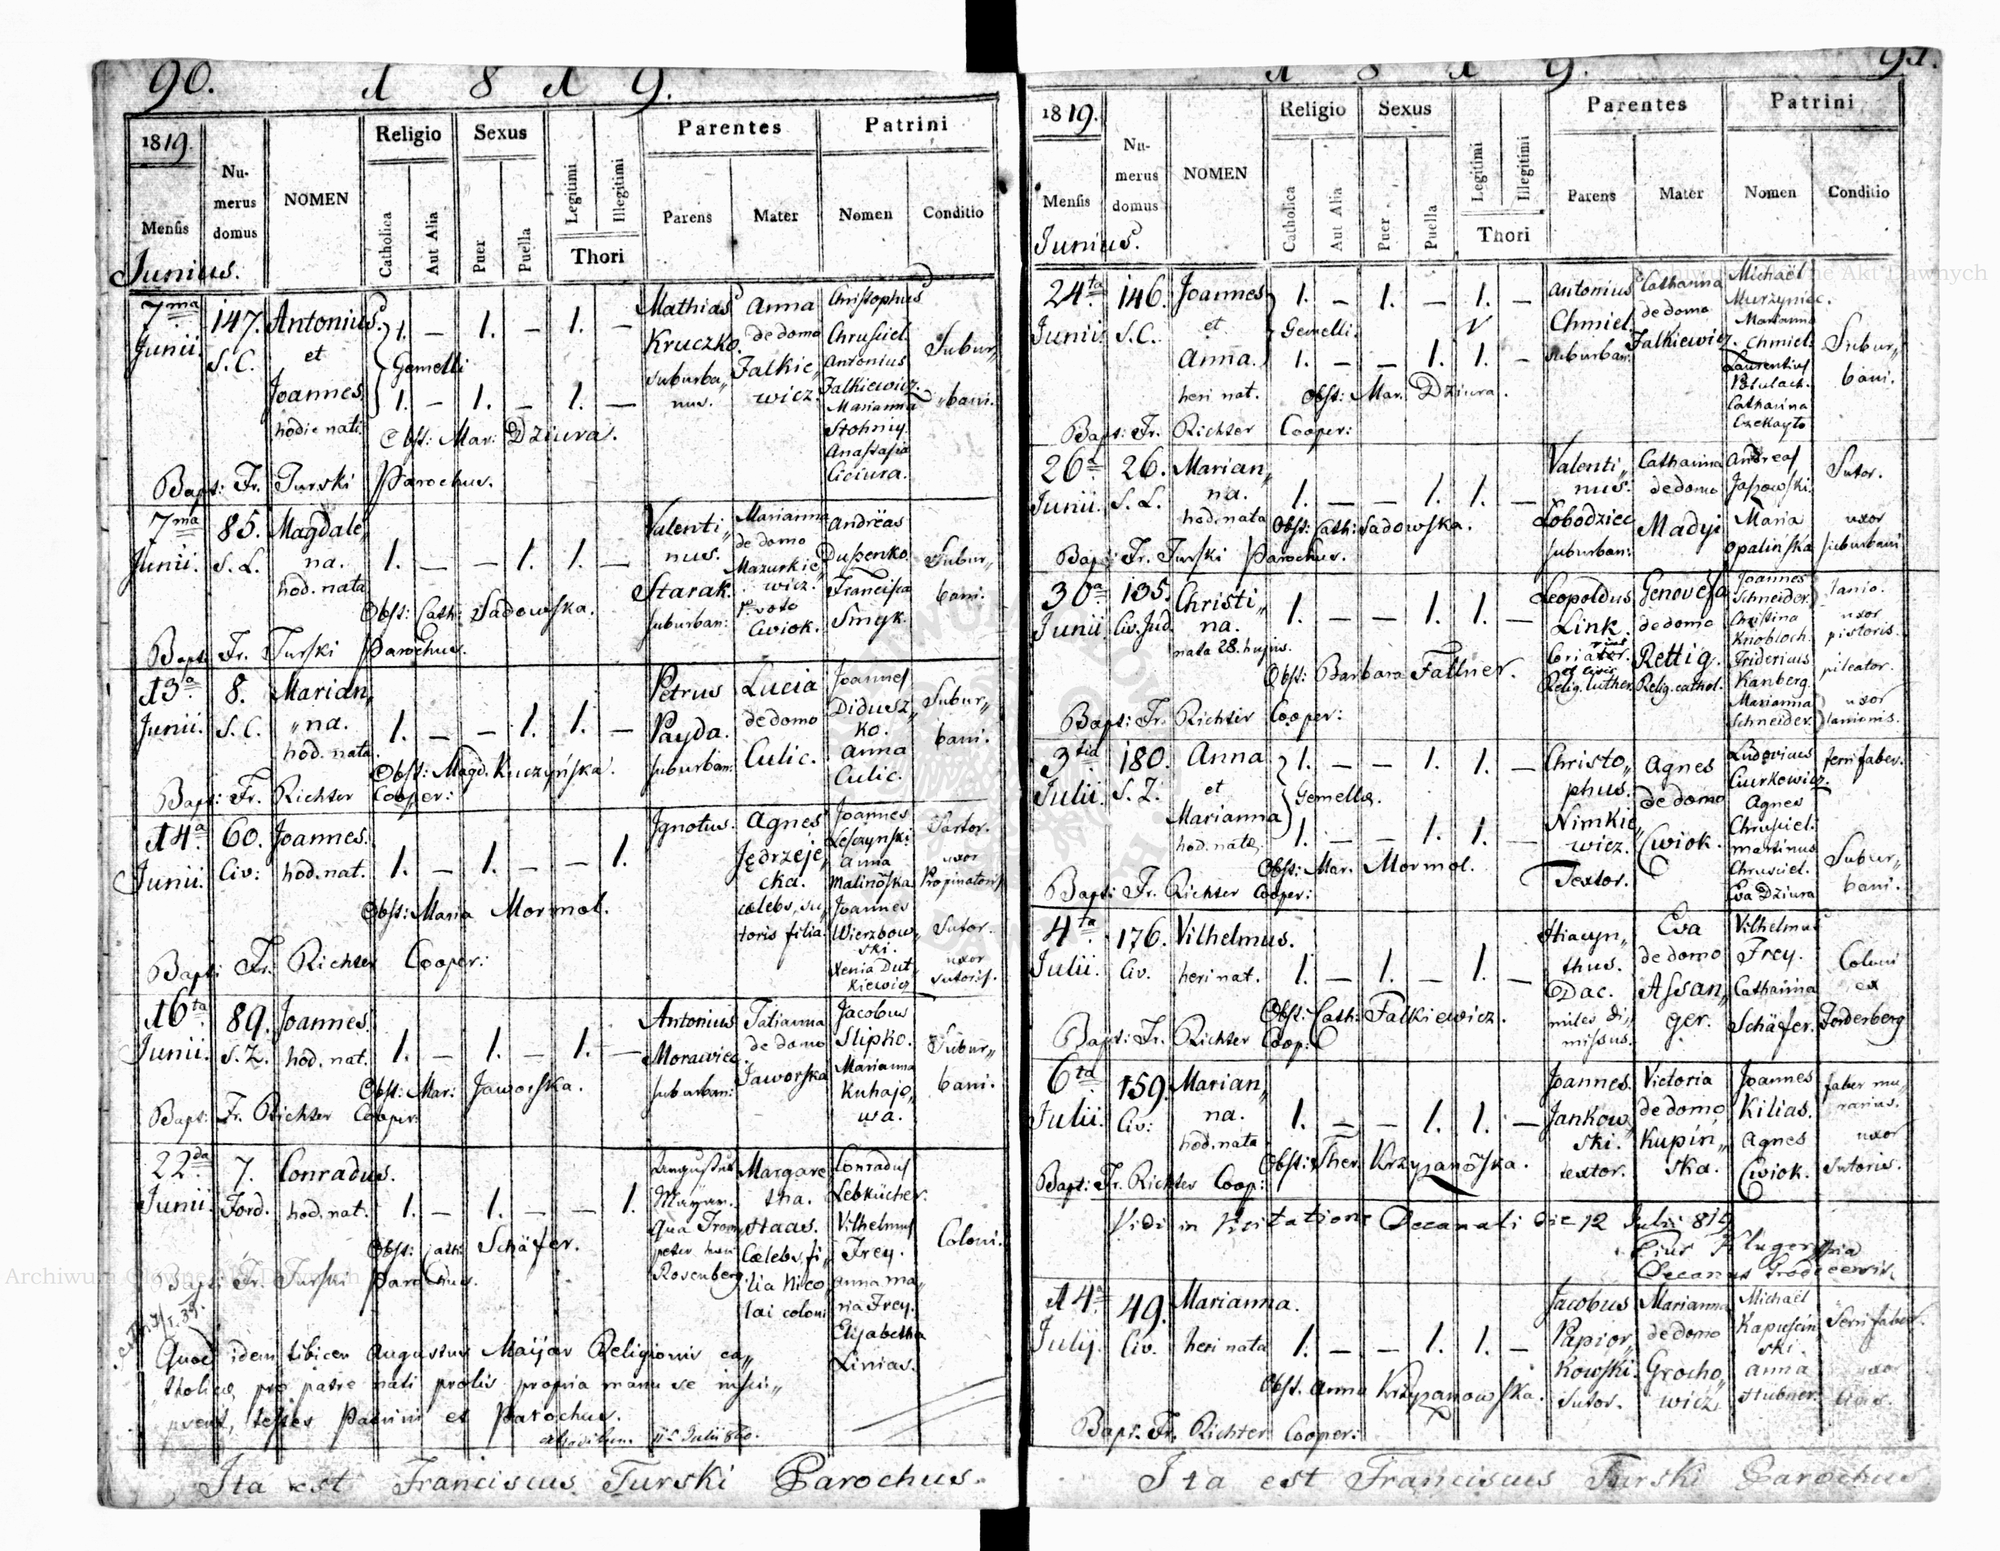 90. 1 8 1 9.
1819. Numerus domus NOMEN Religio Sexus Legitimi Illegitimi Parentes Patrini
Mensis Catholica Aut Alia Puer Puella Thori Parens Mater Nomen Conditio
Junius.
7ma Junii. 147. S. C. Antonius
et
Joannes
hodie nati.
1. — 1. — 1. —
Gemelli
1. — 1. — 1. —
Obst: Mar: Dziura.
Mathias
Kruczko.
suburba„
nus.
Anna
de domo
Falkie„
wicz.
Christophus
Chrusciel.
Antonius
Falkiewicz.
Marianna
Stohniy
Anastasia
Ciciura.
Subur„
„bani.
Bapt: Fr. Turski Parochus.
7ma Junii. 85. S. L. Magdale„
na.
hod. nata
1. — — 1. 1. —
Obst: Cath: Sadowska.
Valenti„
nus.
Starak.
suburban:
Marianna
de domo
Mazurkie„
wicz.
1º voto
Cwiok.
Andrëas
Dußenko.
Francisca
Smyk.
Subur„
bani.
Bapt: Fr. Turski Parochus.
13a Junii. 8. S. C. Marian„
„na.
hod. nata.
1. — — 1. 1. —
Obst: Magd. Kuczyńska.
Petrus
Payda.
suburban:
Lucia
de domo
Culic.
Joannes
Didusz„
ko.
Anna
Culic.
Subur„
bani.
Bapt: Fr. Richter Cooper:
14a Junii. 60. Civ: Joannes.
hod. nat.
1. — 1. — — 1.
Obst: Maria Mormol.
Ignotus.
Agnes
Jędrzeje„
cka.
cælebs, su„
toris filia.
Joannes
Leszzynski.
Anna
Malinoska
Joannes
Wierzbow„
ski.
Xenia Dut„
kiewicz
Sartor.
uxor
Propinatoris
Sutor.
uxor
sutoris.
Bapt: Fr. Richter Cooper:
16ta Junii. 89. S. Z. Joannes.
hod. nat.
1. — 1. — 1. —
Obst: Mar: Jaworska.
Antonius
Morawiec.
suburban:
Tatianna
de domo
Jaworska
Jacobus
Slipko.
Marianna
Kuhajo„
wa.
Subur„
bani.
Bapt: Fr. Richter Cooper:
22da Junii. 7. Ford. Conradus.
hod. nat.
1. — 1. — — 1.
Obst: Cath: Schäfer.
Augustus
Mayar.
Rosenberg.
Margare
tha.
Haas.
Cælebs, fi„
lia Nico„
lai coloni
Conradus
Lebkücher.
Vilhelmus
Frey.
Anna ma„
ria Frey.
Elisabetha
Linias.
Coloni.
Bapt: Fr. Turski Parochus.
Quod idem tibicen Augustus Maijar Religionis ca„
tholicæ, pro patre nati prolis propria manu se inscri„
pserit, testes Patrini et Parochus.
Ita est Franciscus Turski Parochus.
1 8 1 9. 91.
1819. Numerus domus NOMEN Religio Sexus Legitimi Illegitimi Parentes Patrini
Mensis Catholica Aut Alia Puer Puella Thori Parens Mater Nomen Conditio
Junius.
24ta Junii. 146. S. C. Joannes
et
Anna.
heri nat.
1. — 1. — 1. —
Gemelli.
1. — — 1. 1. —
Obst: Mar. Dziura.
Antonius
Chmiel.
suburban:
Catharina
de domo
Falkiewicz.
Michaël
Murzyniec.
Marianna
Chmiel.
Laurentius
Catharina
Czekayło
Subur„
bani.
Bapt: Fr. Richter Cooper:
26a Junii. 26. S. L. Marian„
na.
hod. nata
1. — — 1. 1. —
Obst: Cath: Sadowska.
Valenti„
nus.
Lobodziec
suburban:
Catharina
de domo
Madyj
Andreas
Jaßowski.
Maria
Opalinska
Sutor.
uxor
suburbani
Bapt: Fr. Turski Parochus.
30a Junii 135. Civ. Jud. Christi„
na.
nata 28. hujus.
1. — — 1. 1. —
Obst: Barbara Fallner.
Leopoldus
Link.
Relig. luther.
Genovefa
de domo
Rettig.
Relig. cathol.
Joannes
Schneider.
Christina
Knobloch.
Fridericus
Kanberg.
Marianna
Schneider.
lanio.
uxor
pistoris.
pileator.
uxor
lanionis.
Bapt: Fr. Richter Cooper:
3tia Julii. 180. S. Z. Anna
et
Marianna
hod. natæ
1. — — 1. 1. —
Gemellæ.
1. — — 1. 1. —
Obst: Mar. Mormol.
Christo„
phus.
Nimkie„
wicz.
Textor.
Agnes
de domo
Cwiok.
Ludovicus
Ciurkowicz.
Agnes
Chrusciel.
Martinus
Chrusciel.
Eva Dziura
ferri faber.
Subur„
bani.
Bapt: Fr. Richter Cooper:
4ta Julii. 176. Civ. Vilhelmus.
heri nat.
1. — 1. — 1. —
Obst: Cath: Falkiewicz.
Hiacyn„
thus.
Dac.
miles di„
missus.
Eva
de domo
Assan„
ger.
Vilhelmus
Frey.
Catharina
Schäfer.
Coloni
ex
Forderberg
Bapt: Fr. Richter Coop:
6ta Julii. 159. Civ: Marian„
na.
hod. nata
1. — — 1. 1. —
Obst: Ther. Krzyzanoska.
Joannes
Jankow„
ski.
textor.
Victoria
de domo
Kupiń„
ska.
Joannes
Kilias.
Agnes
Cwiok.
faber mu„
rarius.
uxor
sutoris.
Bapt: Fr. Richter Coop:
Vidi in Visitatione Decanali die 12 Julii 819
Decanus
14a Julij. 49. Civ. Marianna.
heri nata
1. — — 1. 1. —
Obst. Anna Krzyzanowska.
Jacobus
Papior„
kowski.
Sutor.
Marianna
de domo
Grocho„
wicz
Michaël
Kapuscin
ski.
Anna
Hubner.
ferri faber.
uxor
Bapt: Fr. Richter Cooper:
Ita est Franciscus Turski Parochus
Archiwum Główne Akt Dawnych
Archiwum Główne Akt Dawnych